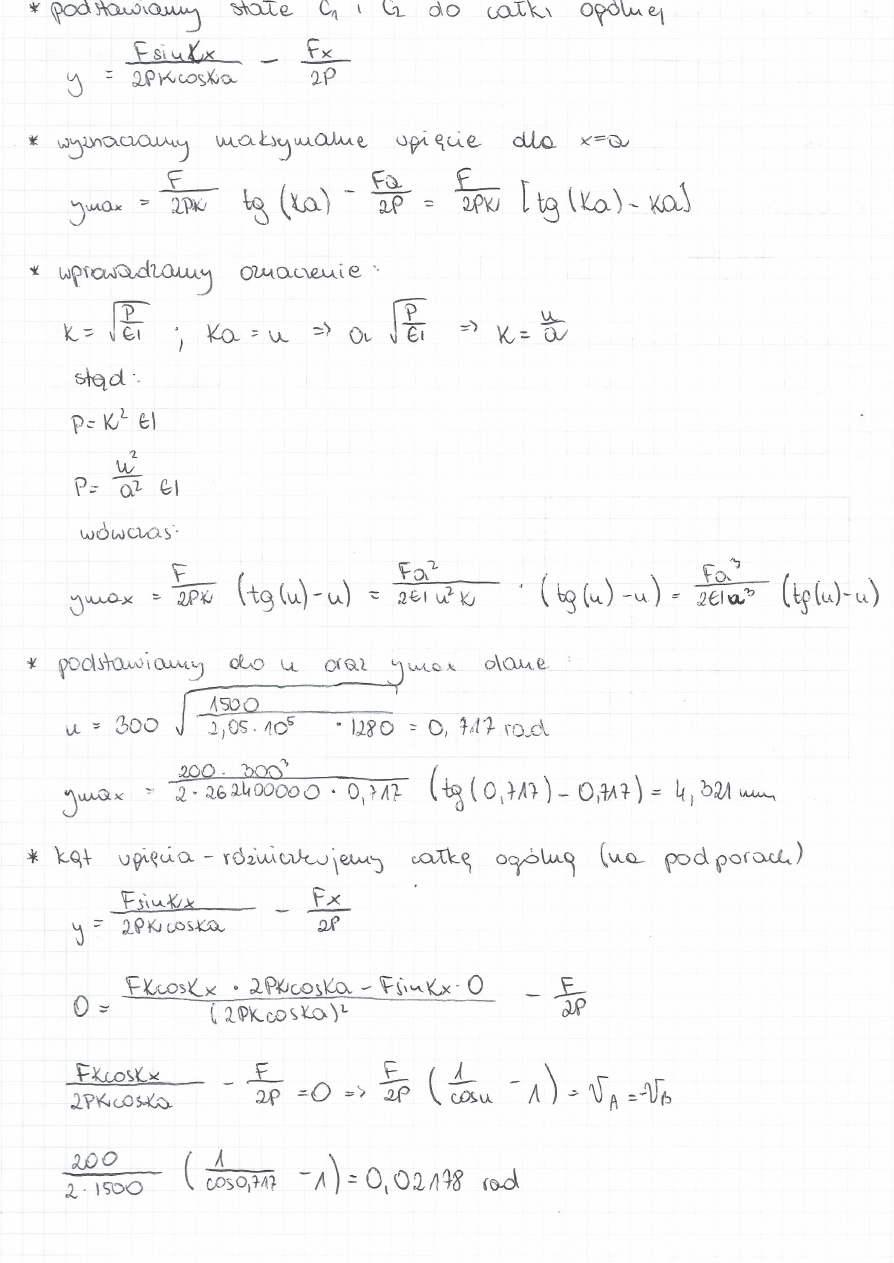 * podstawiamy stałe C₁ i C₂ do całki ogólnej
y = FsinKx / 2PKcosKa − Fx / 2P
* wyznaczamy maksymalne ugięcie dla x=a
ymax = F / 2PK tg (Ka) − Fa / 2P = F / 2PK [tg (Ka) − Ka]
* wprowadzamy oznaczenie:
K = √(P / EI) ; Ka = u => a √(P / EI) => K = u / a
stąd:
P = K² EI
P = u² / a² EI
wówczas:
ymax = F / 2PK (tg(u) − u) = Fa² / 2EI u² K · (tg(u) − u) = Fa³ / 2EI u³ (tg(u) − u)
* podstawiamy do u oraz ymax dane:
u = 300 √(1500 / 2,05·10⁵ · 1280) = 0,717 rad
ymax = 200 · 300³ / 2 · 262400000 · 0,717 (tg(0,717) − 0,717) = 4,321 mm
* kąt ugięcia – różniczkujemy całkę ogólną (na podporach)
y = FsinKx / 2PKcosKa − Fx / 2P
0 = FKcosKx · 2PKcosKa − FsinKx · 0 / (2PKcosKa)² − F / 2P
FKcosKx / 2PKcosKa − F / 2P = 0 => F / 2P (1 / cosu − 1) = 𝒱A = −𝒱B
200 / 2·1500 (1 / cos0,717 − 1) = 0,02178 rad